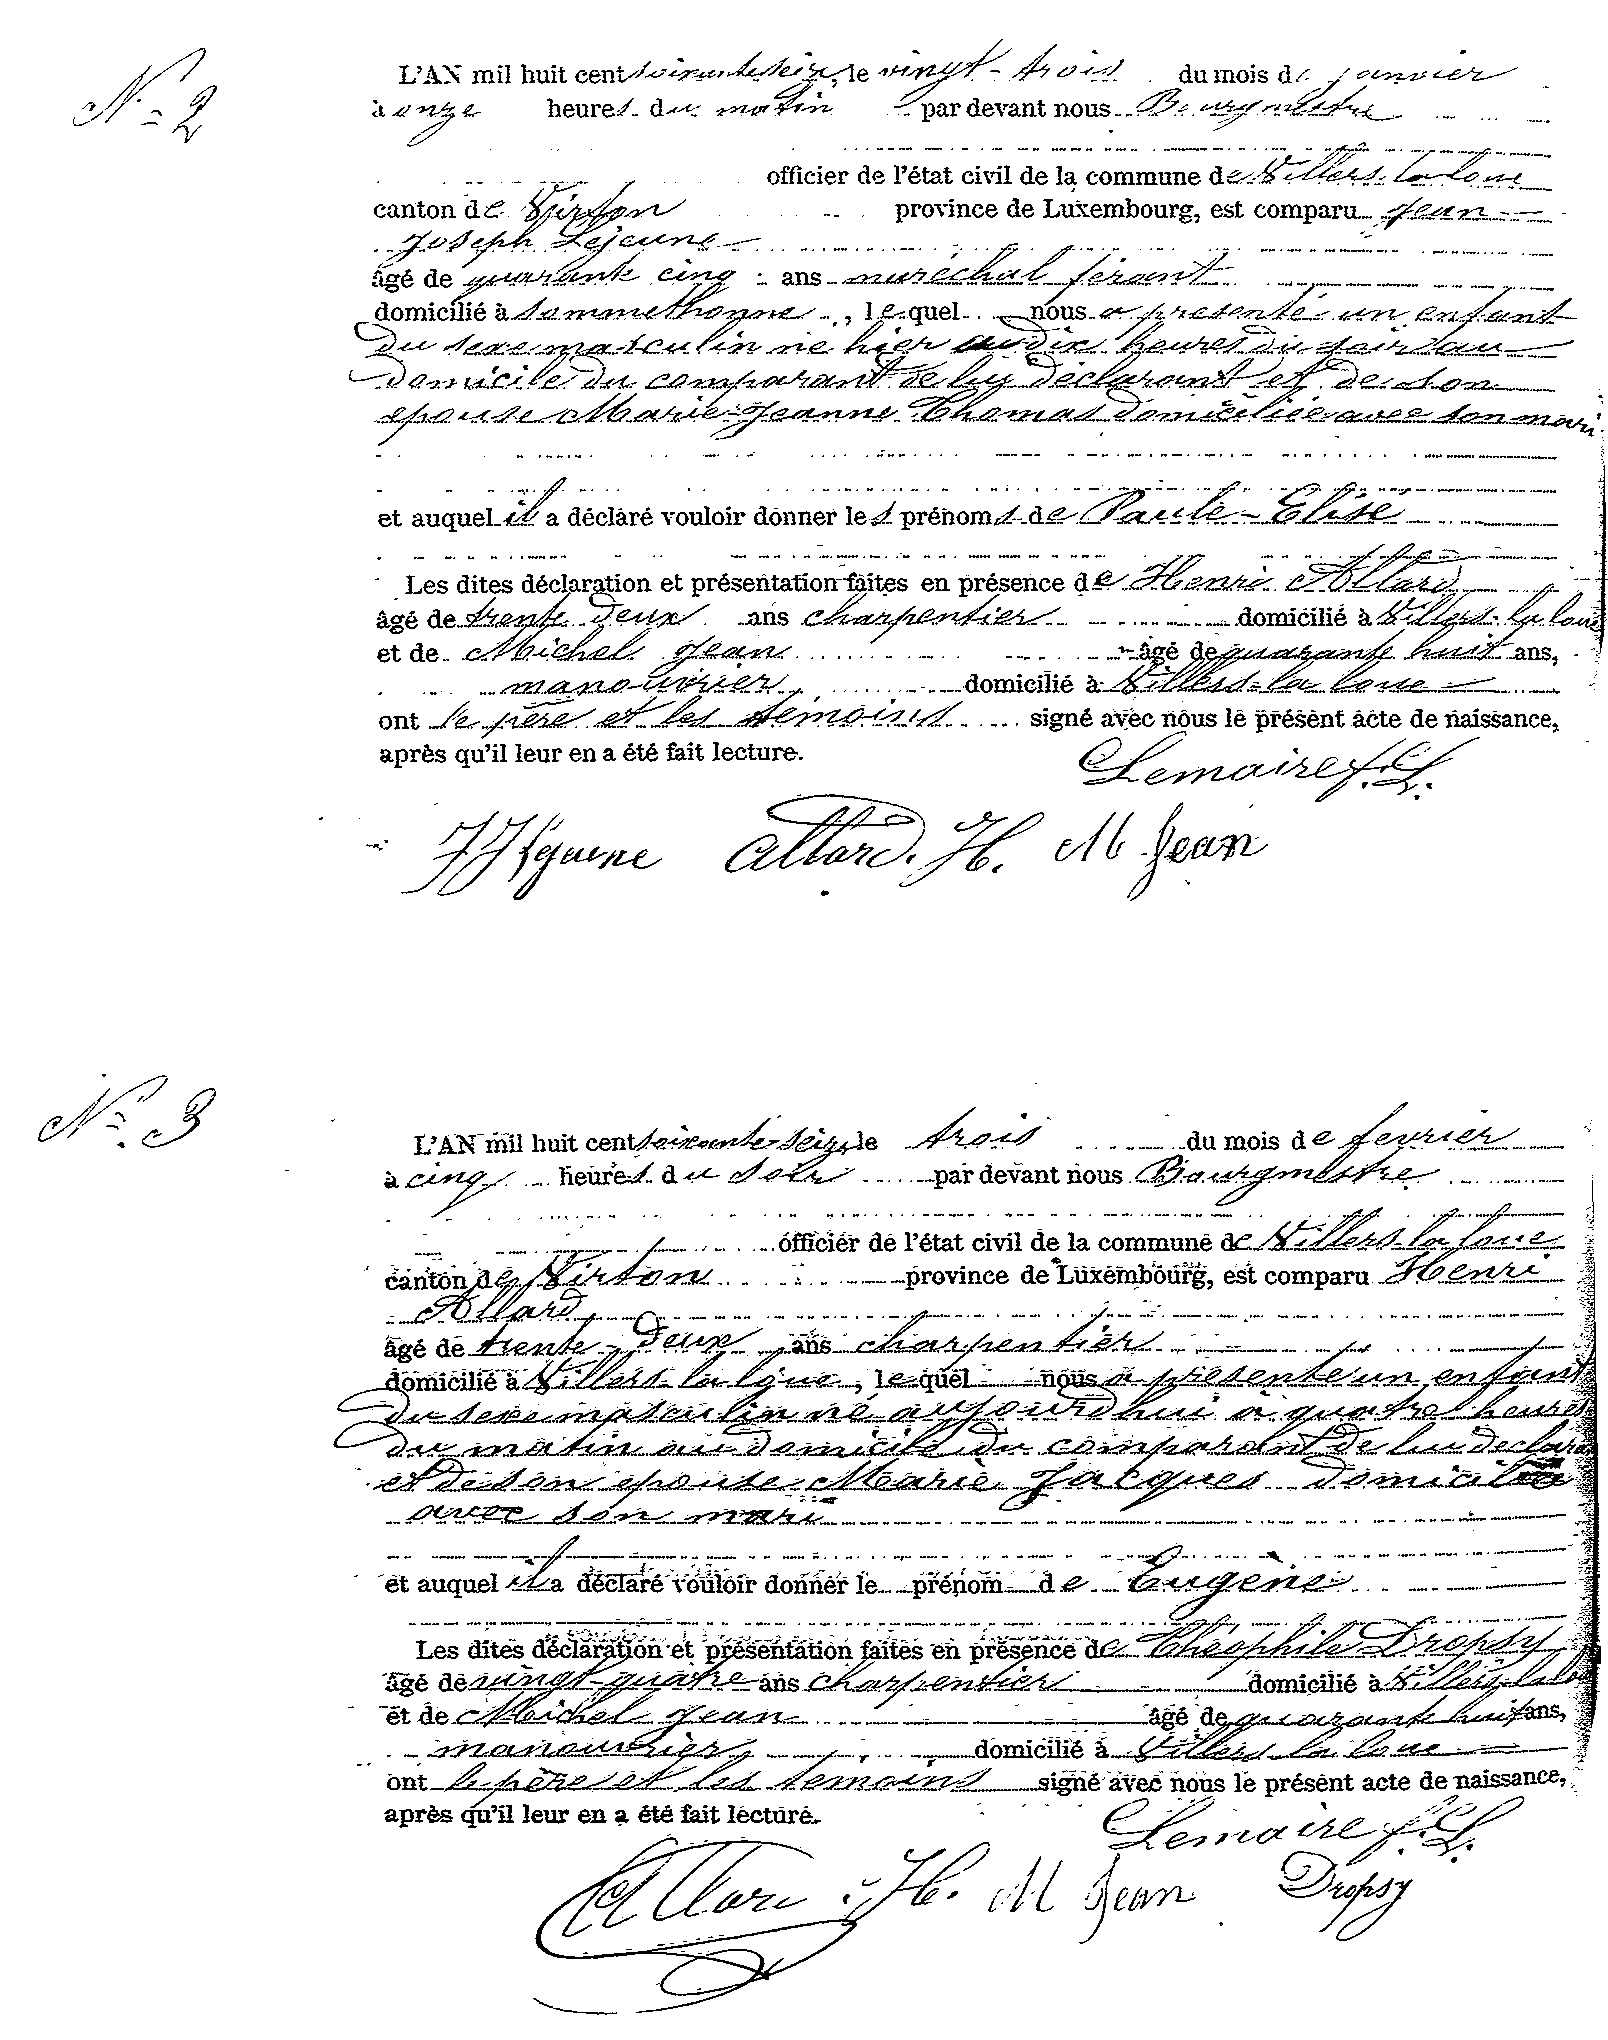 N° 2
L'AN mil huit cent soixante seize, le vingt-trois du mois de janvier
à onze heures du matin par devant nous Bourgmestre
officier de l'état civil de la commune de Villers-la-loue
canton de Virton province de Luxembourg, est comparu Jean
Joseph Lejeune
âgé de quarante cinq ans maréchal ferant
domicilié à Sommethonne, lequel nous a presenté un enfant
du sexe masculin né hier à dix heures du soir au
domicile du comparant de luy déclarant et de son
epouse Marie-Jeanne Thomas domiciliée avec son mari
et auquel il a déclaré vouloir donner les prénoms de Paule-Elise
Les dites déclaration et présentation faites en présence de Henri Allard
âgé de trente deux ans charpentier domicilié à Villers-la loue
et de Michel Jean âgé de quarante huit ans,
manouvrier, domicilié à Villers-la loue
ont le père et les témoins signé avec nous le présent acte de naissance,
après qu'il leur en a été fait lecture.
Lemaire f. L.
JJ Lejeune Allard. H. M Jean
N° 3
L'AN mil huit cent soixante-seize, le trois du mois de fevrier
à cinq heures du soir par devant nous Bourgmestre
officier de l'état civil de la commune de Villers-la loue
canton de Virton province de Luxembourg, est comparu Henri
Allard,
âgé de trente-deux ans charpentier
domicilié à Villers-la loue, lequel nous a presenté un enfant
du sexe masculin né aujourd'hui à quatre heures
du matin au domicile du comparant de lui declara
et de son epouse Marie Jacques domiciliée
avec son mari
et auquel il a déclaré vouloir donner le prénom de Eugène
Les dites déclaration et présentation faites en présence de Théophile Dropsy
âgé de vingt-quatre ans charpentier domicilié à Villers-la lou
et de Michel Jean âgé de quarante huit ans,
manouvrier, domicilié à Villers la loue
ont le père et les temoins signé avec nous le présent acte de naissance,
après qu'il leur en a été fait lecture.
Lemaire f. L.
Allard. H. M Jean Dropsy